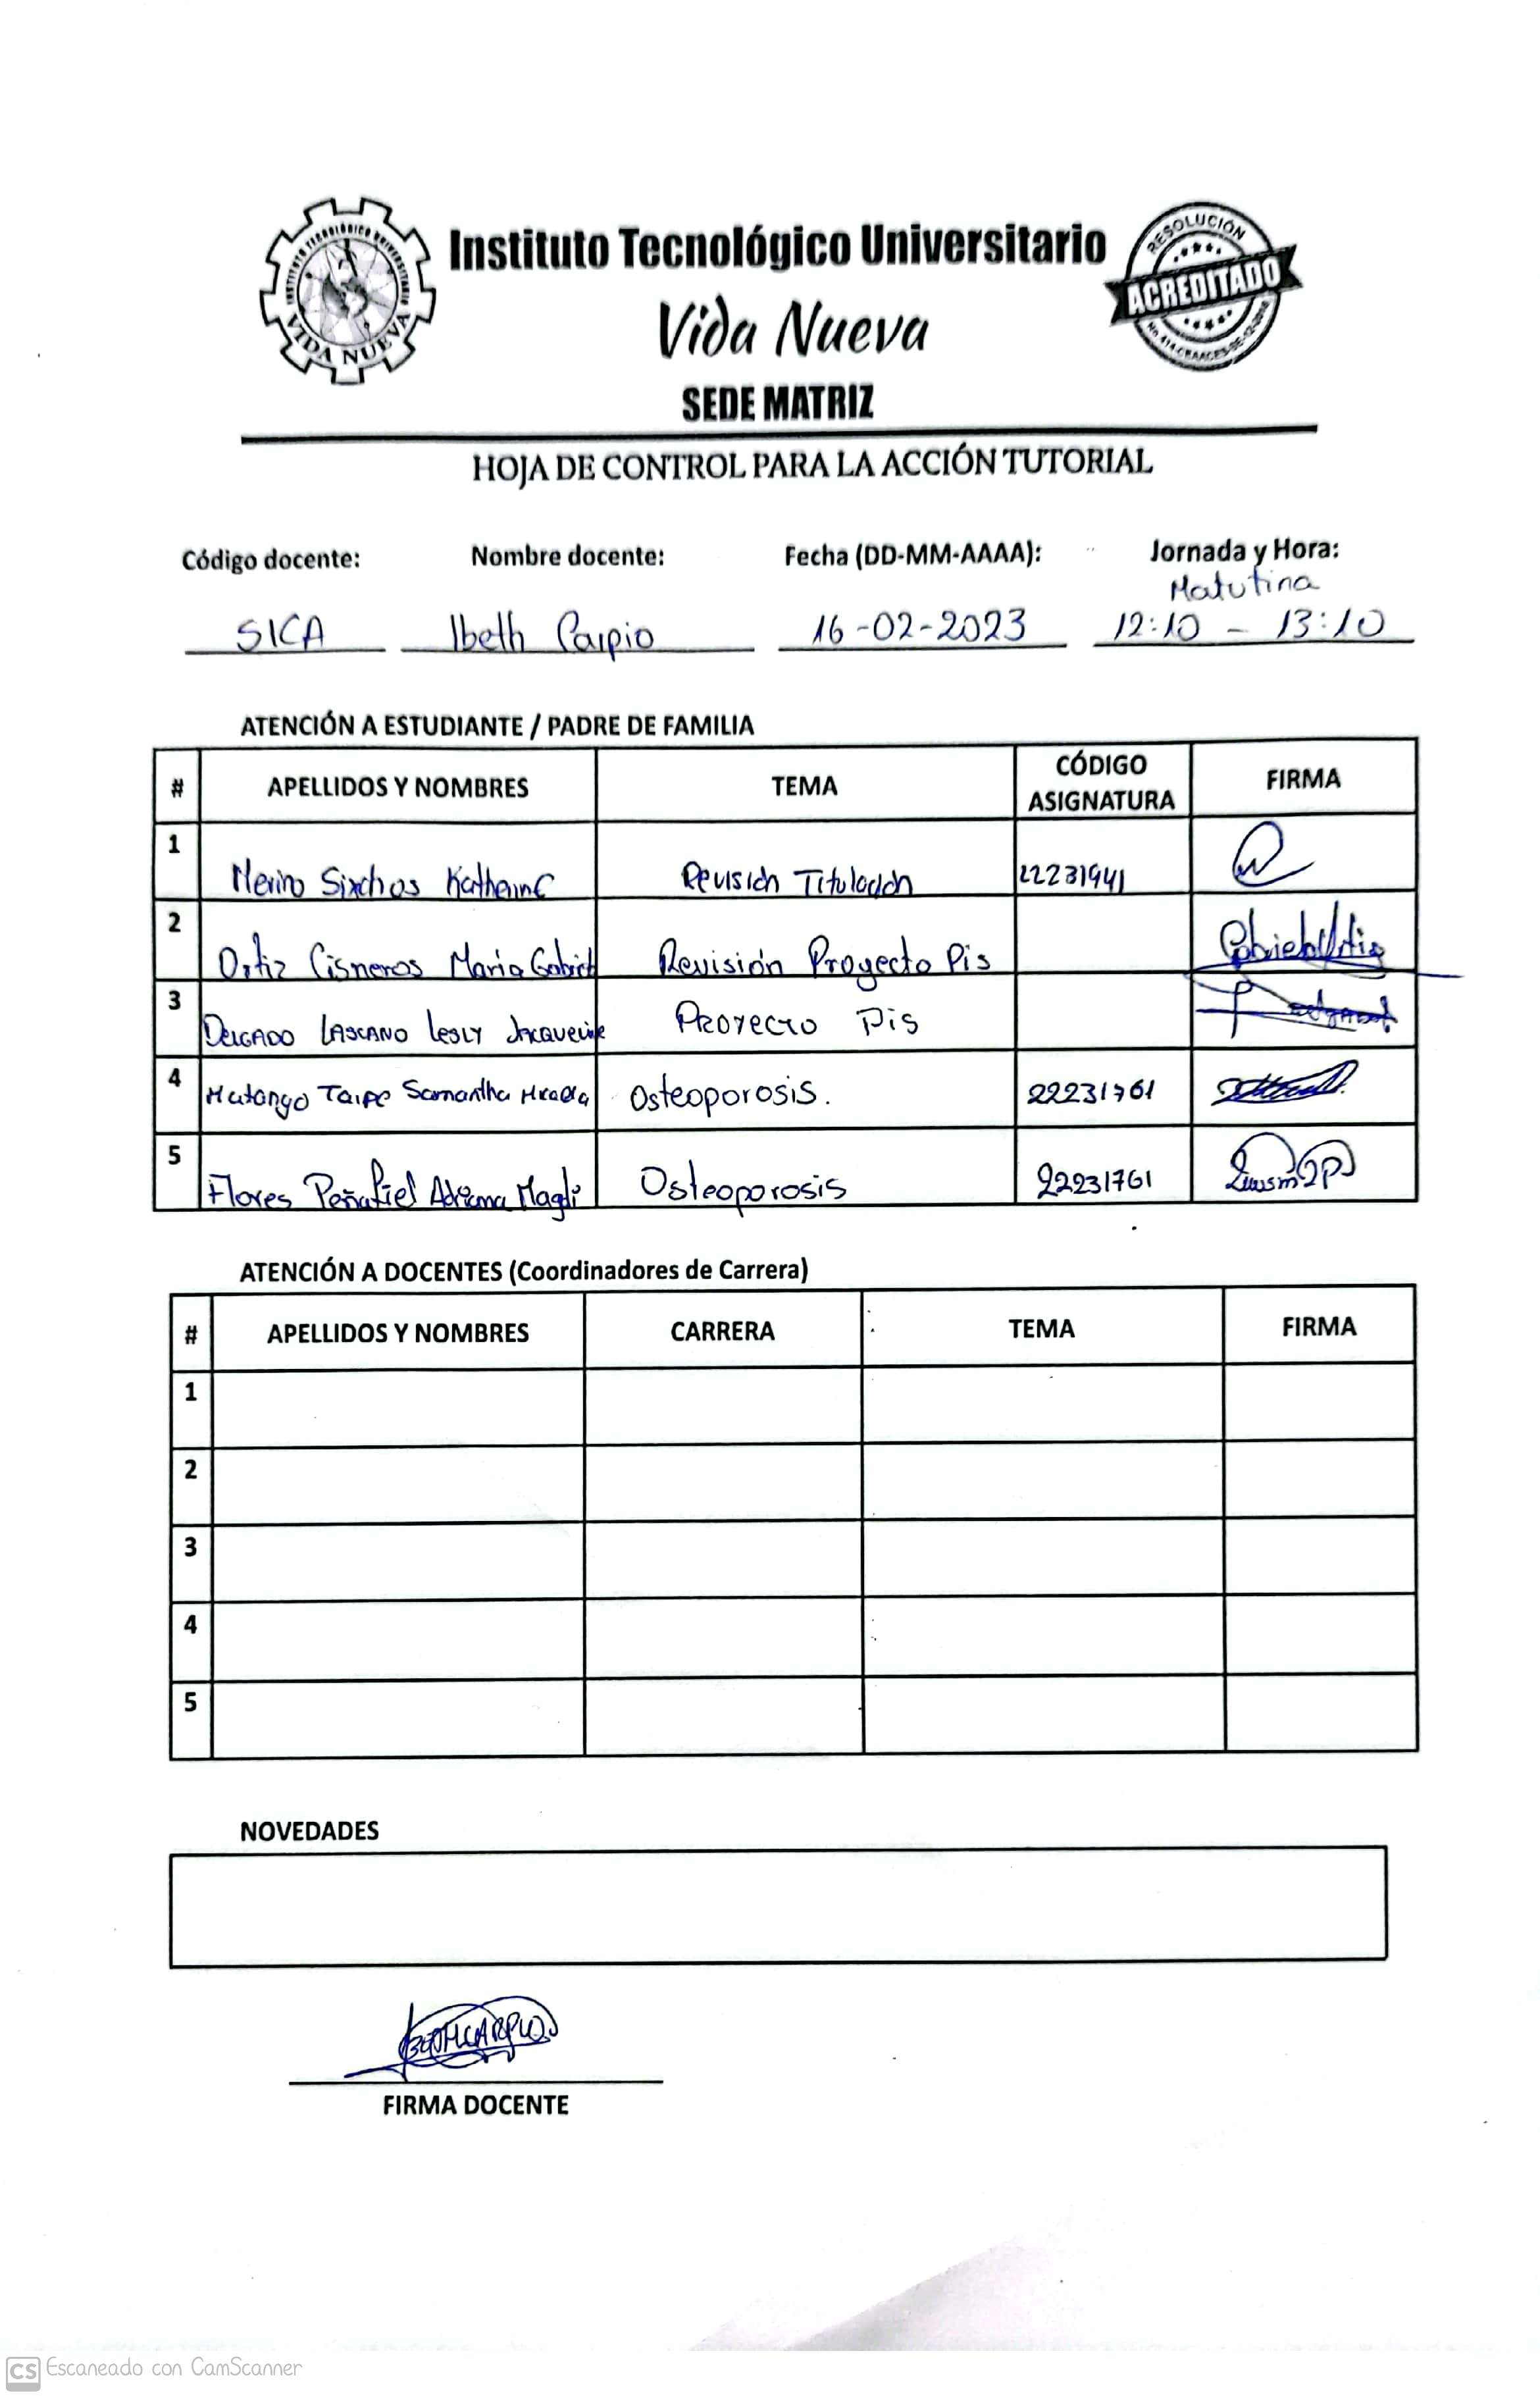 INSTITUTO TECNOLÓGICO UNIVERSITARIO
VIDA NUEVA
Instituto Tecnológico Universitario
Vida Nueva
SEDE MATRIZ
RESOLUCIÓN
ACREDITADO
HOJA DE CONTROL PARA LA ACCIÓN TUTORIAL
Código docente: Nombre docente: Fecha (DD-MM-AAAA): Jornada y Hora:
Matutina
SICA Ibeth Carpio 16-02-2023 12:10 - 13:10
ATENCIÓN A ESTUDIANTE / PADRE DE FAMILIA
# APELLIDOS Y NOMBRES TEMA CÓDIGO ASIGNATURA FIRMA
1 Merino Sinchos Katherine Revisión Titulación 22231941
2 Ortiz Cisneros Maria Gabriel Revisión Proyecto Pis
3 DELGADO LASCANO LESLY JACQUELINE PROYECTO PIS
4 Matango Taipe Samantha Osteoporosis. 22231761
5 Flores Peñafiel Adriana Magali Osteoporosis 22231761
ATENCIÓN A DOCENTES (Coordinadores de Carrera)
# APELLIDOS Y NOMBRES CARRERA TEMA FIRMA
1
2
3
4
5
NOVEDADES
FIRMA DOCENTE
CS Escaneado con CamScanner